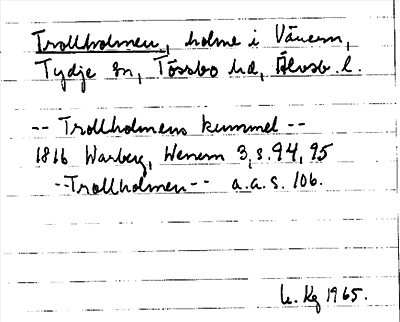 Trollholmen, holme i Vänern,
Tydje sn, Tössbo hd, Älvsb. l.
-- Trollholmens kummel --
1816 Warberg, Wenern 3, s. 94, 95
--Trollholmen-- a.a. s. 106.
Kg 1965.